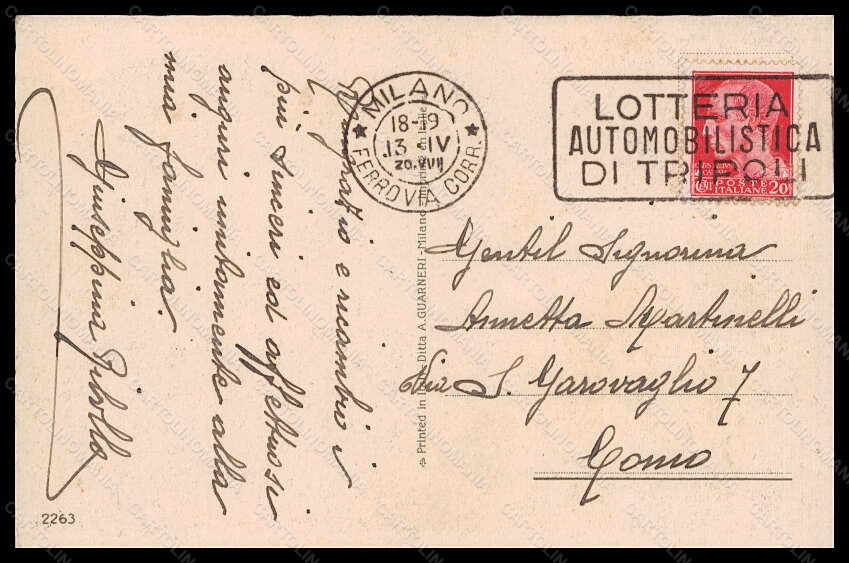 MILANO
18-19
13 IV
FERROVIA CORR.
LOTTERIA
AUTOMOBILISTICA
DI TRIPOLI
POSTE
ITALIANE
20
Gentil Signorina
Annetta Martinelli
Via S. Garovaglio 7
Como
Ringrazio e ricambio i
più sinceri ed affettuosi
auguri unitamente alla
mia famiglia.
Giuseppina
Printed in Ditta A. GUARNERI - Milano
2263
CARTOLINOMANIA